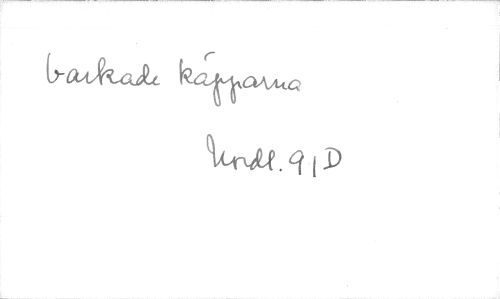 barkade käpparna
Nordl. 91D